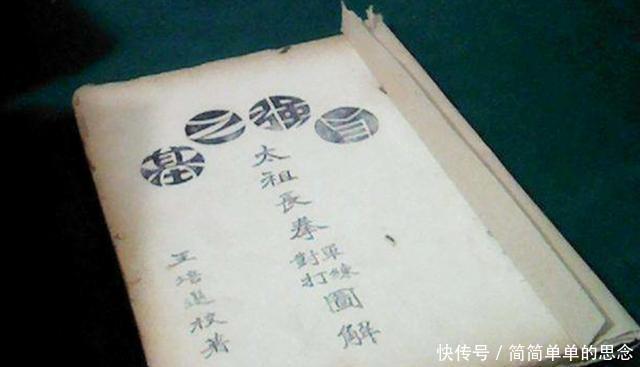 自强之基
太祖長拳單練對打圖解
王培校著
快传号/简简单单的思念